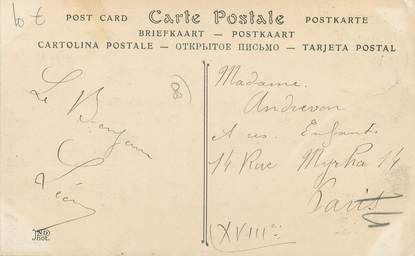 POST CARD Carte Postale POSTKARTE
BRIEFKAART — POSTKAART
CARTOLINA POSTALE — ОТКРЫТОЕ ПИСЬМО — TARJETA POSTAL
Le Benjamin
Léon
Madame
Andrevon
et ses Enfants
14 Rue Myrha 14
Paris
(XVIIIe)
ND
Phot.